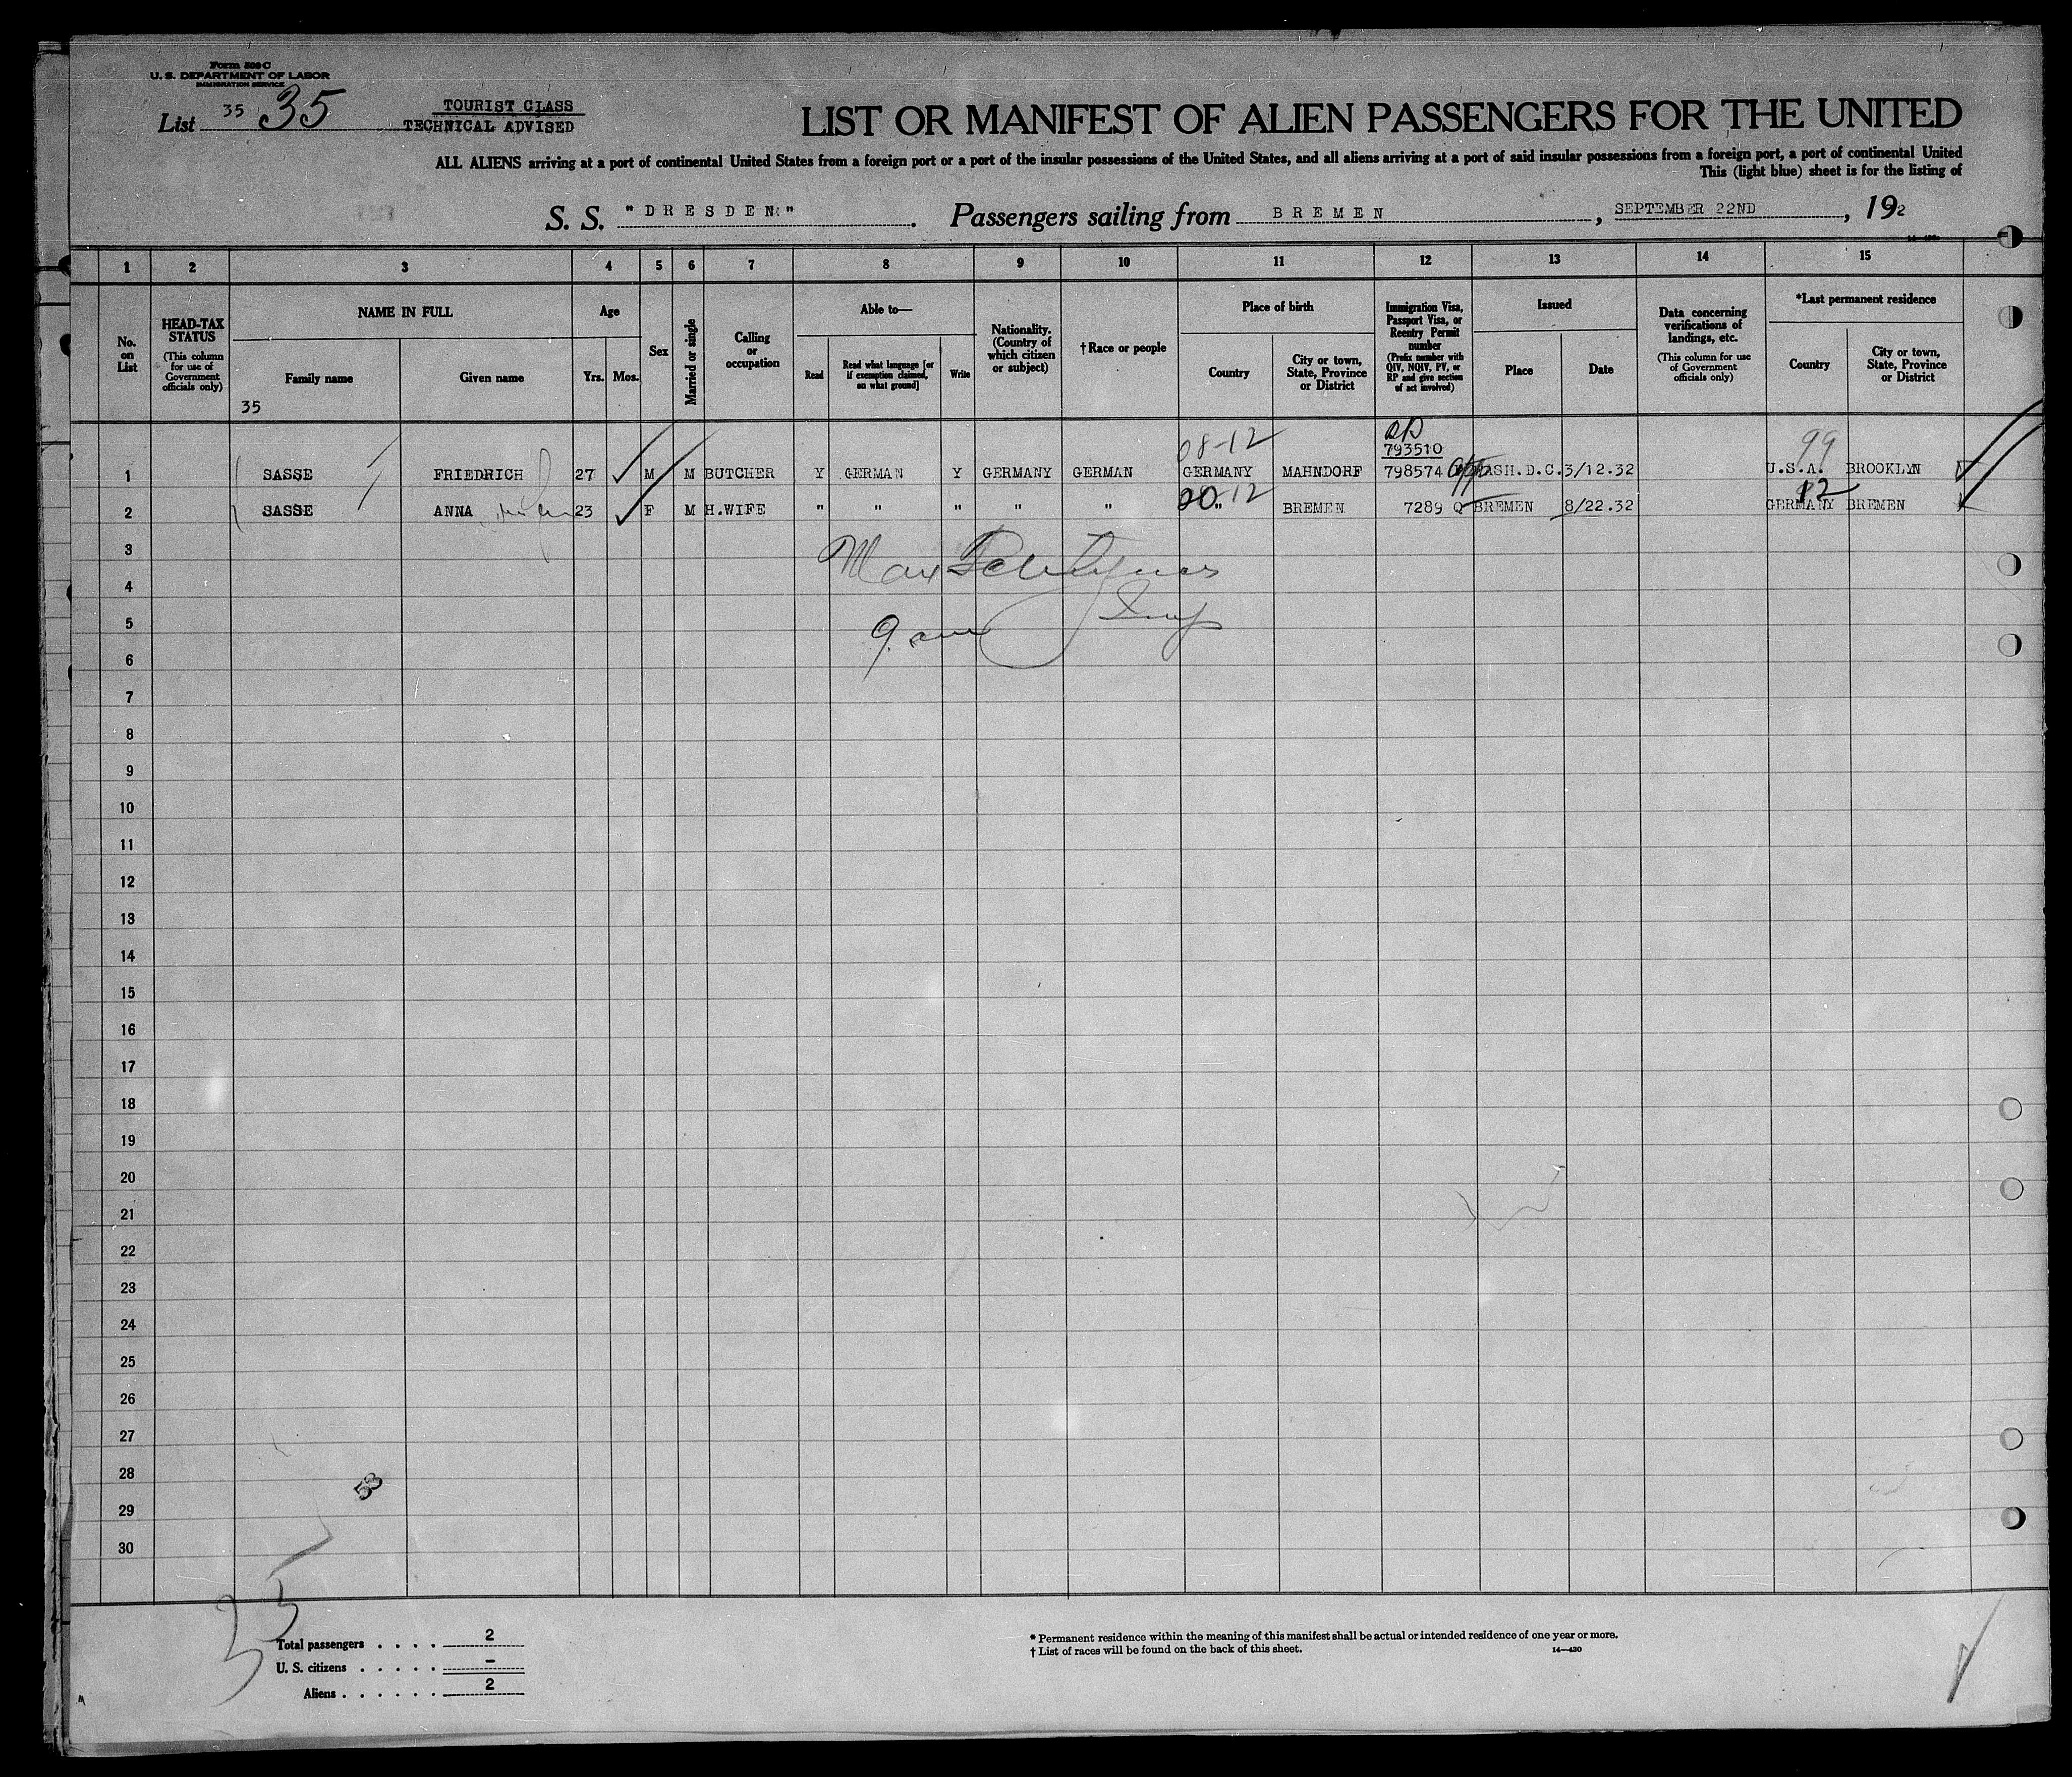 Form 500 C
U. S. DEPARTMENT OF LABOR
IMMIGRATION SERVICE
List 35 35
TOURIST CLASS
TECHNICAL ADVISED
LIST OR MANIFEST OF ALIEN PASSENGERS FOR THE UNITED
ALL ALIENS arriving at a port of continental United States from a foreign port or a port of the insular possessions of the United States, and all aliens arriving at a port of said insular possessions from a foreign port, a port of continental United
This (light blue) sheet is for the listing of
S. S. "DRESDEN" . Passengers sailing from BREMEN , SEPTEMBER 22ND , 192
1 2 3 4 5 6 7 8 9 10 11 12 13 14 15
No. on List
HEAD-TAX STATUS
(This column for use of Government officials only)
NAME IN FULL
Family name
Given name
35
Age
Yrs. Mos.
Sex
Married or single
Calling or occupation
Able to—
Read
Read what language [or if exemption claimed, on what ground]
Write
Nationality. (Country of which citizen or subject)
†Race or people
Place of birth
Country
City or town, State, Province or District
Immigration Visa, Passport Visa, or Reentry Permit number
(Prefix number with QIV, NQIV, PV, or RP and give section of act involved)
Issued
Place
Date
Data concerning verifications of landings, etc.
(This column for use of Government officials only)
*Last permanent residence
Country
City or town, State, Province or District
08-12 793510 99
1 SASSE FRIEDRICH 27 M M BUTCHER Y GERMAN Y GERMANY GERMAN GERMANY MAHNDORF 798574 WASH.D.C. 3/12.32 U.S.A. BROOKLYN
20-12 12
2 SASSE ANNA 23 F M H.WIFE " " " " " " BREMEN 7289 Q BREMEN 8/22.32 GERMANY BREMEN
3
Max
4
Insp
5
9 am
6
7
8
9
10
11
12
13
14
15
16
17
18
19
20
21
22
23
24
25
26
27
28
53
29
30
35
Total passengers . . . . 2
U. S. citizens . . . . . –
Aliens . . . . . . 2
* Permanent residence within the meaning of this manifest shall be actual or intended residence of one year or more.
† List of races will be found on the back of this sheet. 14—430